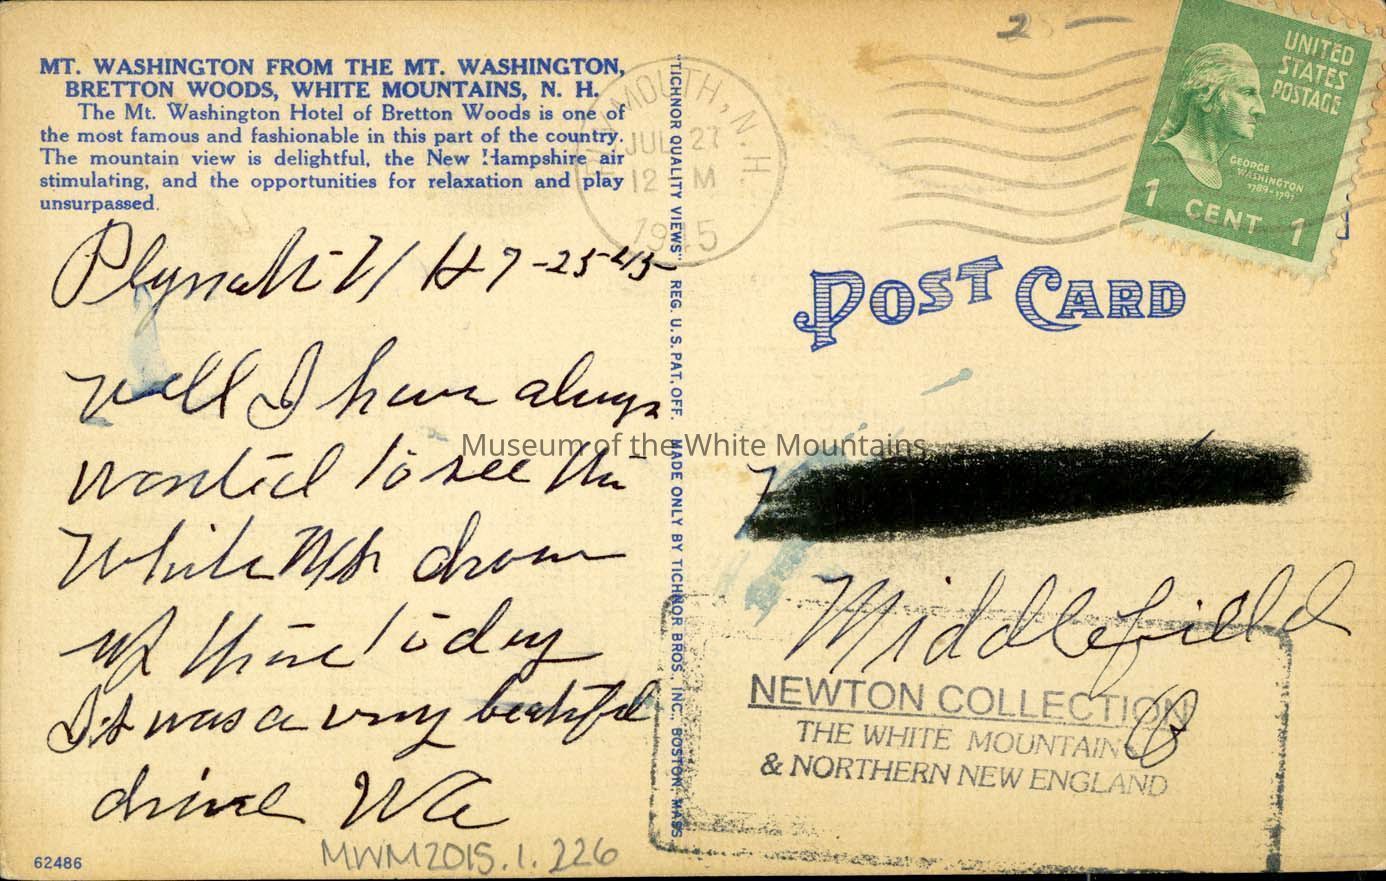 MT. WASHINGTON FROM THE MT. WASHINGTON,
BRETTON WOODS, WHITE MOUNTAINS, N. H.
The Mt. Washington Hotel of Bretton Woods is one of
the most famous and fashionable in this part of the country.
The mountain view is delightful, the New Hampshire air
stimulating, and the opportunities for relaxation and play
unsurpassed.
Plymouth N H 7-25-45
Well I have always
wanted to see the
White Mts drove
up there today
It was a very beautiful
drive We
62486
MWM2015.1.226
"TICHNOR QUALITY VIEWS" REG. U.S. PAT. OFF. MADE ONLY BY TICHNOR BROS., INC., BOSTON, MASS.
PLYMOUTH, N.H.
JUL 27
12 M
1945
25—
UNITED
STATES
POSTAGE
GEORGE
WASHINGTON
1789-1797
1 CENT 1
POST CARD
Museum of the White Mountains
Middlefield
NEWTON COLLECTION
THE WHITE MOUNTAINS
& NORTHERN NEW ENGLAND